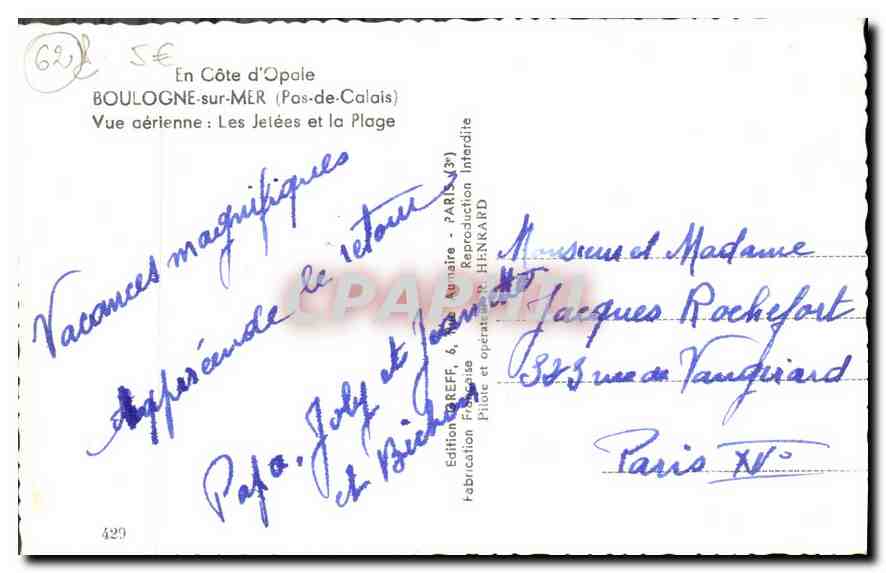 62
5€
En Côte d'Opale
BOULOGNE-sur-MER (Pas-de-Calais)
Vue aérienne : Les Jetées et la Plage
Vacances magnifiques
Appréhende le retour
Papa, Joly et Jeannette
et Bichon
429
Edition GREFF, 6, Rue Aumaire - PARIS (3e)
Fabrication Française Reproduction Interdite
Pilote et opérateur R. HENRARD
CPAPHIL
Monsieur et Madame
Jacques Rochefort
323 rue de Vaugirard
Paris XVº